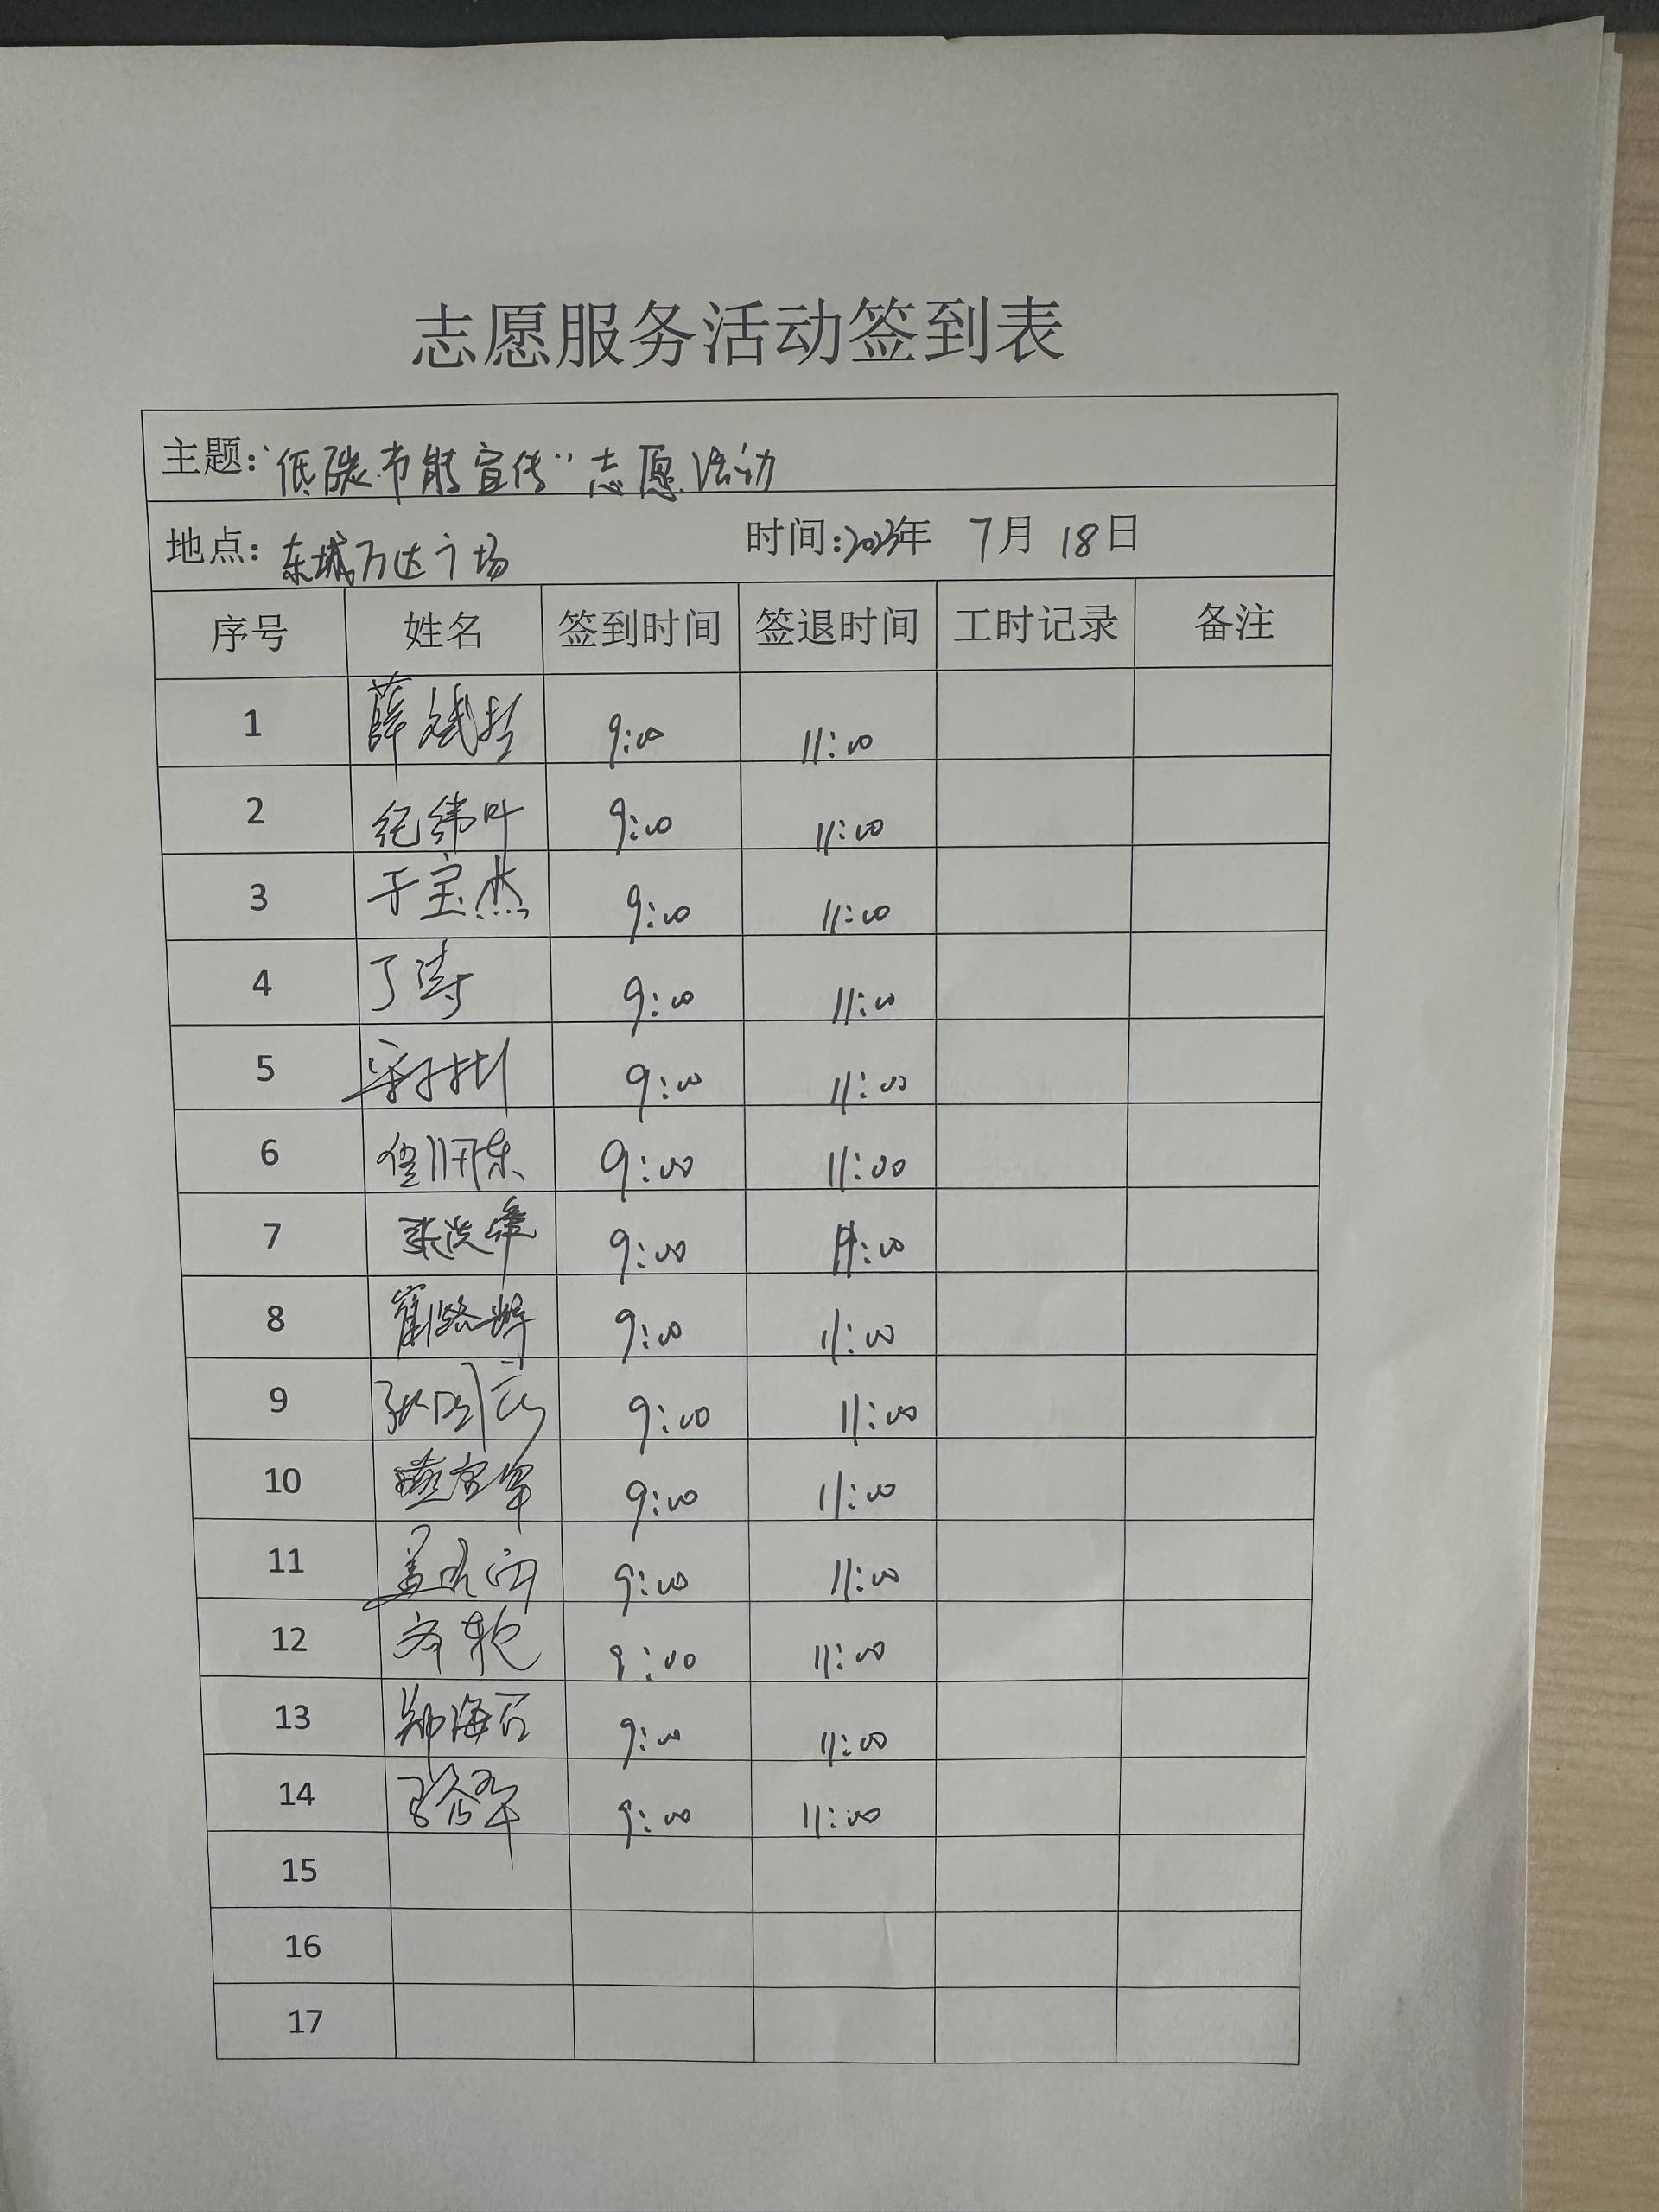 志愿服务活动签到表
主题:“低碳节能宣传”志愿活动
地点:东城万达广场 时间:2023年 7月 18日
序号 姓名 签到时间 签退时间 工时记录 备注
1 薛斌 9:00 11:00
2 纪纬叶 9:00 11:00
3 于宝杰 9:00 11:00
4 丁涛 9:00 11:00
5 9:00 11:00
6 9:00 11:00
7 张洪峰 9:00 11:00
8 崔路辉 9:00 11:00
9 9:00 11:00
10 9:00 11:00
11 9:00 11:00
12 9:00 11:00
13 郑海石 9:00 11:00
14 9:00 11:00
15
16
17